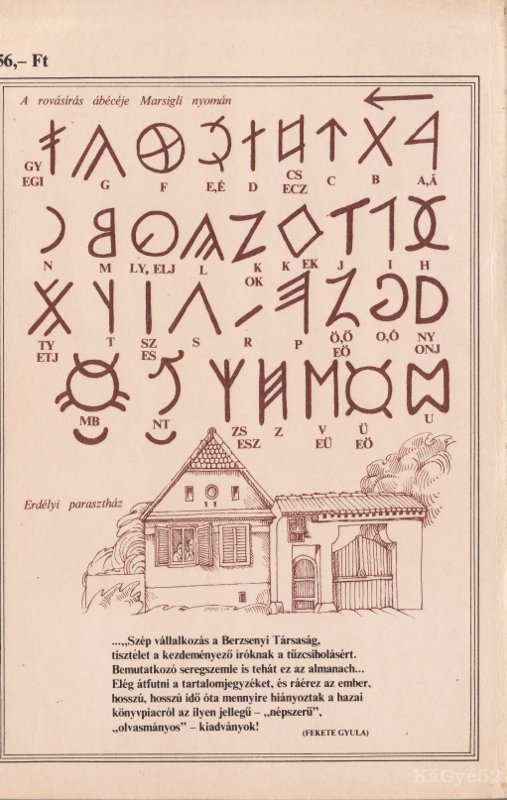 56,– Ft
A rovásírás ábécéje Marsigli nyomán
GY G F E,É D CS C B A,Á
EGI ECZ
N M LY, ELJ L K K EK J I H
OK
TY T SZ S R P Ö,Ő O,Ó NY
ETJ ES EÖ ONJ
MB NT ZS Z V Ü U
ESZ EÜ EÖ
Erdélyi parasztház
...„Szép vállalkozás a Berzsenyi Társaság,
tisztélet a kezdeményező íróknak a tűzcsiholásért.
Bemutatkozó seregszemle is tehát ez az almanach...
Elég átfutni a tartalomjegyzéket, és ráérez az ember,
hosszú, hosszú idő óta mennyire hiányoztak a hazai
könyvpiacról az ilyen jellegű – „népszerű”,
„olvasmányos” – kiadványok!
(FEKETE GYULA)
KáGyé52